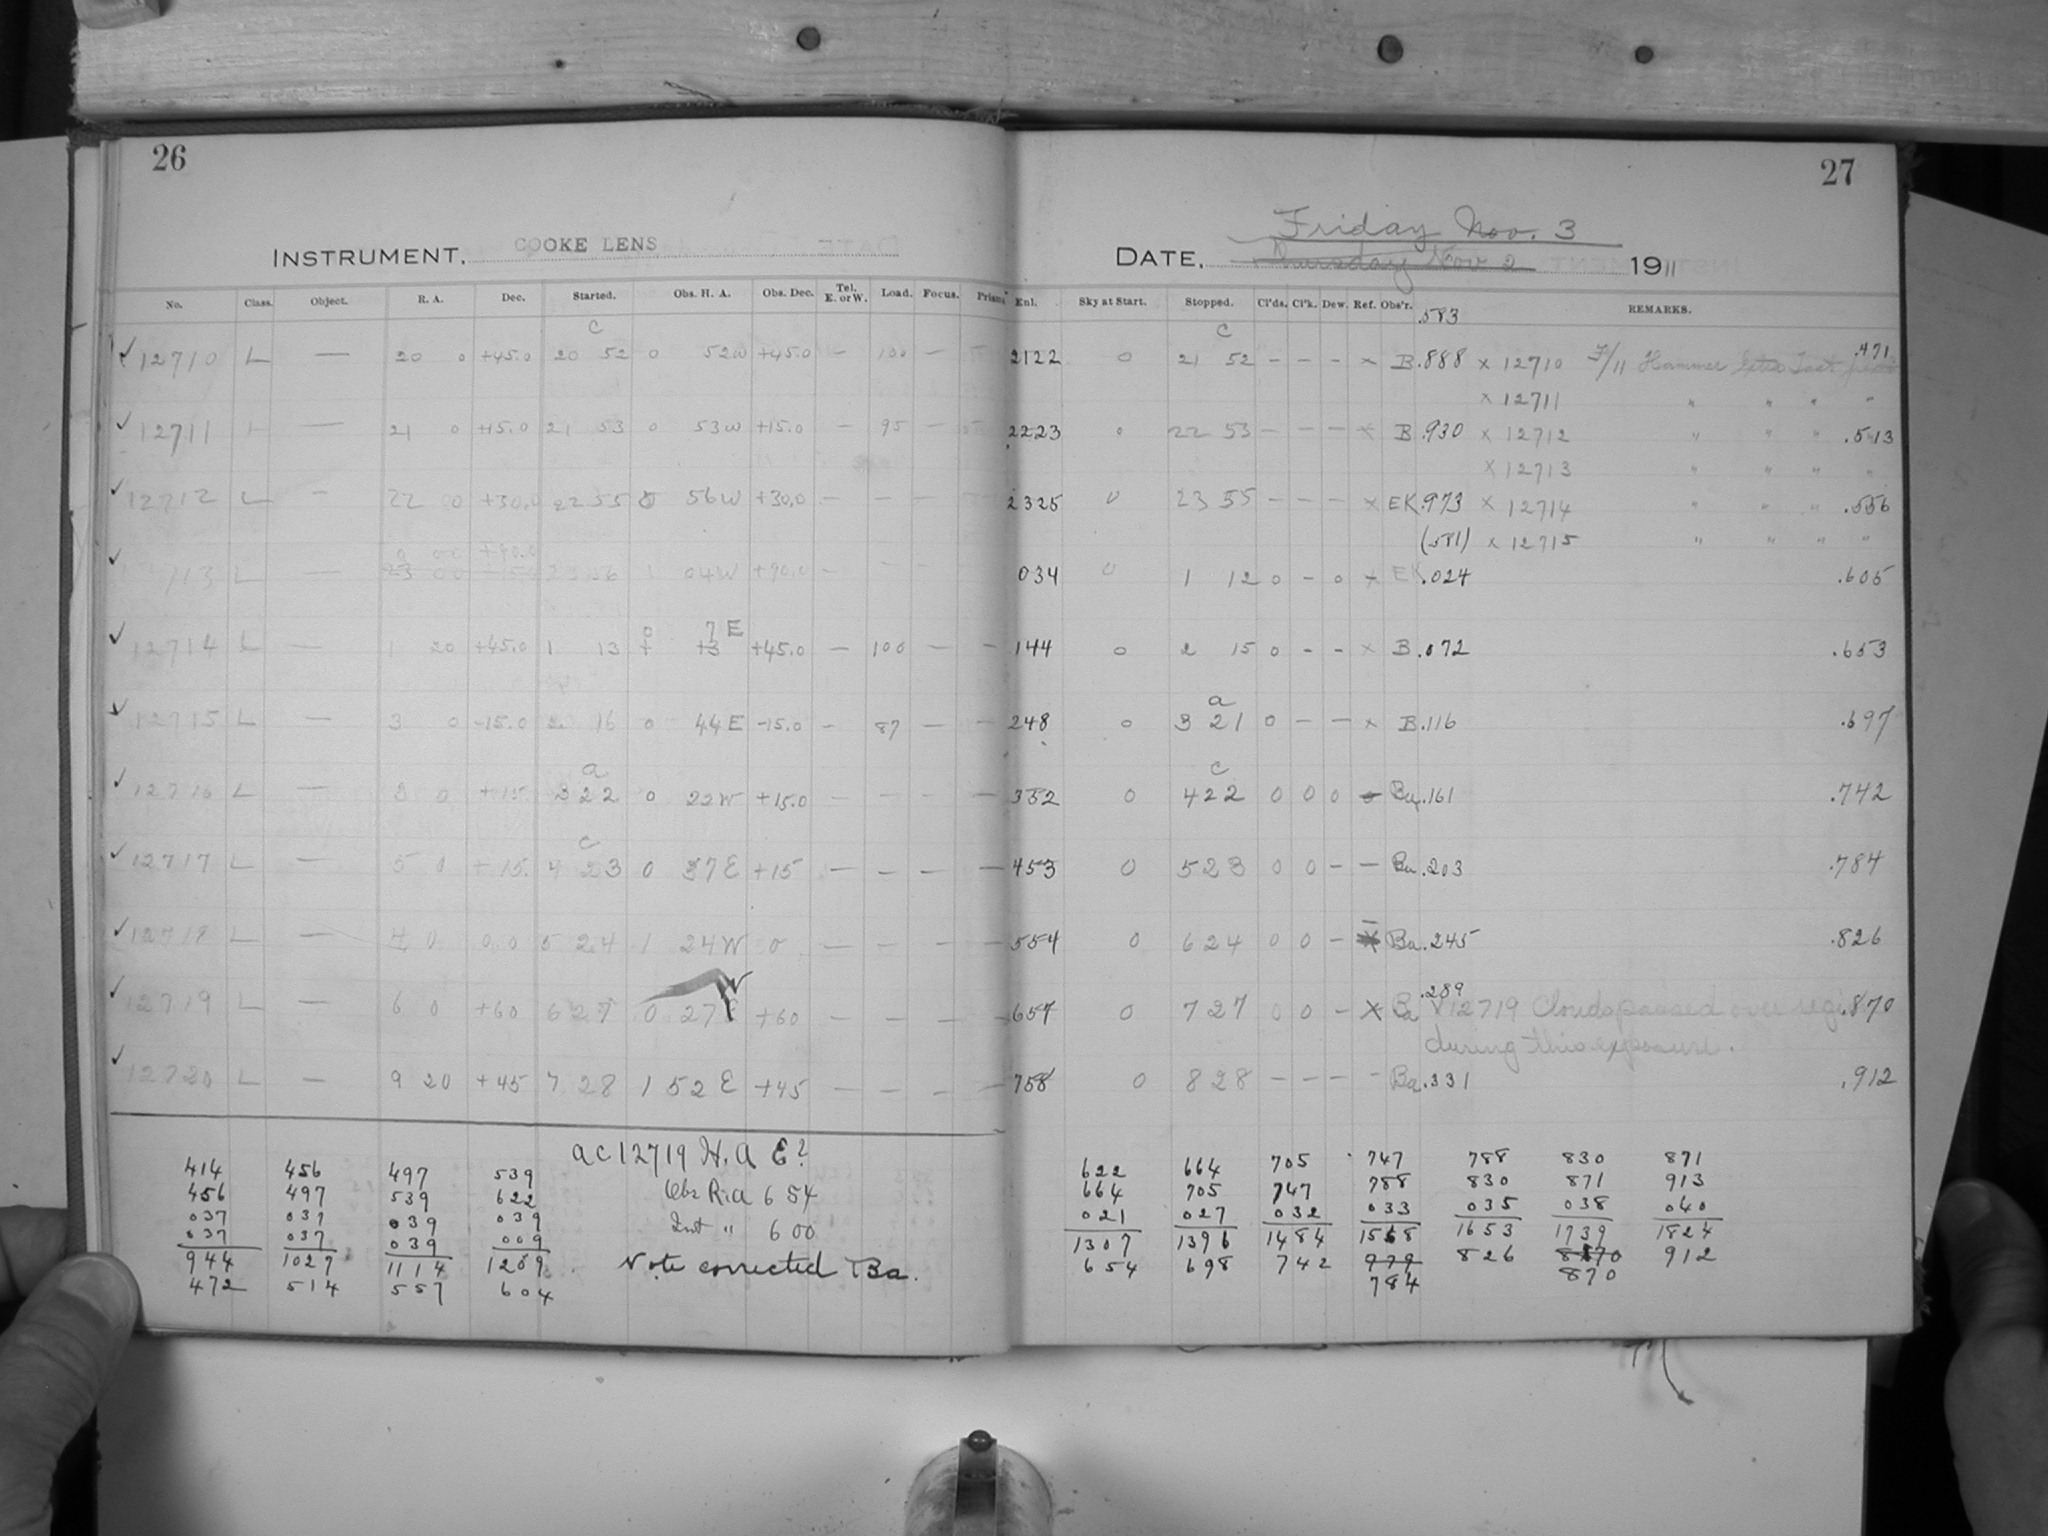 26
INSTRUMENT. COOKE LENS
No. Class. Object. R. A. Dec. Started. Obs. H. A. Obs. Dec. Tel. E. or W. Load. Focus. Prism
C
✓ 12710 L — 20 0 +45.0 20 52 0 52W +45.0 — 100 —
✓ 12711 L — 21 0 +15.0 21 53 0 53W +15.0 — 95 —
✓ 12712 L — 22 0 +30.0 22 55 0 56W +30.0 — — —
0 00 +90.0
✓ 713 L — 23 00 1 04W +90.0 — — —
0 7 E
✓ 12714 L — 1 20 +45.0 1 13 + +3 +45.0 — 100 — —
✓ 12715 L — 3 0 -15.0 2 16 0 44E -15.0 — 87 — —
a
✓ 12716 L — 3 0 +15 322 0 22W +15.0 — — — —
C
✓ 12717 L — 5 0 +15. 4 23 0 37E +15 — — — —
✓ 12718 L — 4 0 0.0 5 24 1 24W 0 — — — —
W
✓ 12719 L — 6 0 +60 6 27 0 27E +60 — — — —
✓ 12720 L — 9 20 +45 7 28 1 52 E +45 — — — —
AC12719 H.A E?
Obs R.A 6 54
Int " 6 00
Note corrected Ba.
414 456 497 539
456 497 539 622
037 037 039 039
037 037 039 009
944 1027 1114 1209
472 514 557 604
27
Friday Nov. 3
DATE, Thursday Nov 2 1911
Enl. Sky at Start. Stopped. Cl'ds. Cl'k. Dew. Ref. Obs'r. REMARKS.
.583
C
2122 0 21 52 — — — x B .888 x 12710 F/11 Hammer Extra Fast .471
x 12711 " " " "
2223 0 22 53 — — — x B .930 x 12712 " " " .513
x 12713 " " " "
2325 0 23 55 — — — x EK .973 x 12714 " " " .556
(.581) x 12715 " " " "
034 0 1 12 0 — 0 x EK .024 .605
144 0 2 15 0 — — x B .072 .653
a
248 0 3 21 0 — — x B .116 .697
C
352 0 422 0 0 0 Ba .161 .742
453 0 523 0 0 — — Ba .203 .784
554 0 624 0 0 — x Ba .245 .826
.289
657 0 727 0 0 — X Ba x12719 Clouds passed over regi .870
during this exposure.
758 0 828 — — — — Ba .331 .912
622 664 705 747 788 830 871
664 705 747 788 830 871 913
021 027 032 033 035 038 040
1307 1396 1484 1568 1653 1739 1824
654 698 742 979 826 8170 912
784 870